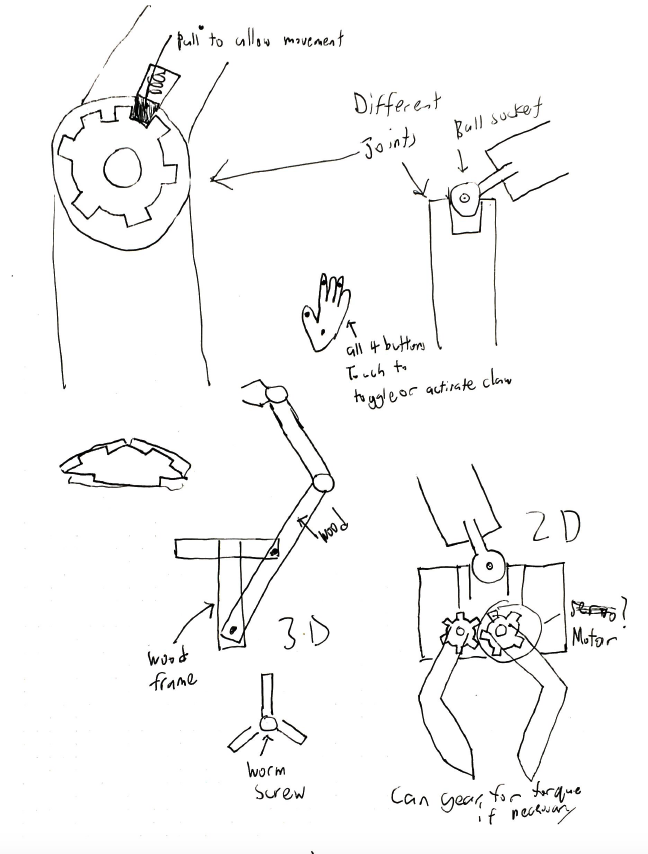 "Pull" to allow movement
Different
Joints
Ball socket
all 4 buttons
Touch to
toggle or activate claw
wood
2D
3D
servo?
Motor
wood
frame
worm
screw
Can gear for torque
if necessary